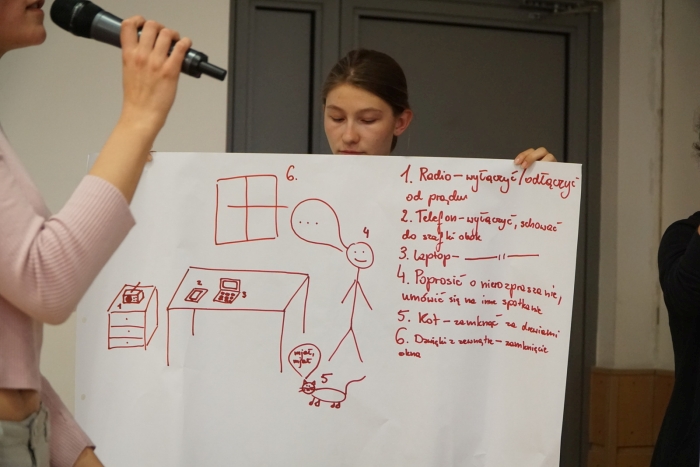 6.
...
4
1
2
3
miał,
miał
5
1. Radio – wyłączyć/odłączyć
od prądu
2. Telefon – wyłączyć, schować
do szafki obok
3. Laptop – ——〃——
4. Poprosić o nierozpraszanie,
umówić się na inne spotkanie
5. Kot – zamknąć za drzwiami
6. Dźwięki z zewnątrz – zamknięcie
okna